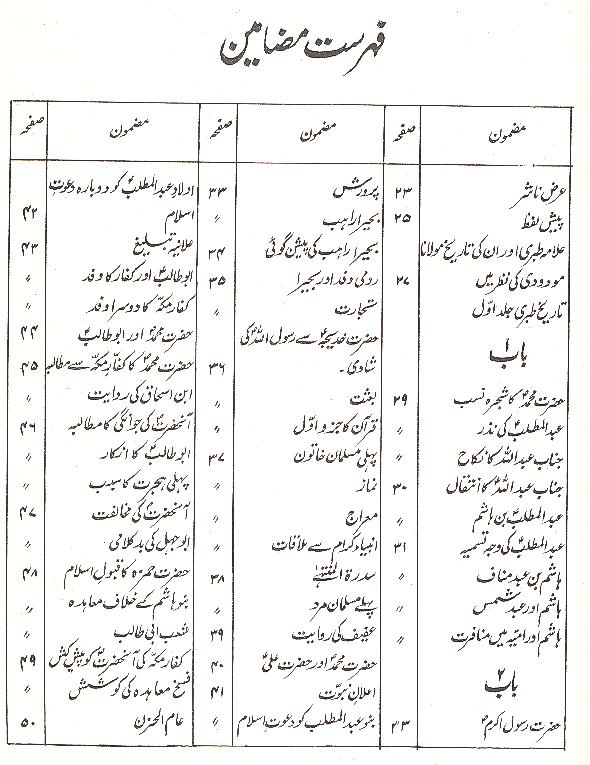 فہرست مضامین
مضمون صفحہ
عرض ناشر ۲۳
پیش لفظ ۲۵
علامہ طبری اور ان کی تاریخ مولانا
مودودی کی نظر میں ۲۷
تاریخ طبری جلد اوّل
باب ۱
حضرت محمدؐ کا شجرہ نسب ۲۹
عبدالمطلبؑ کی نذر 〃
جناب عبداللہؑ کا نکاح 〃
جناب عبداللہؑ کا انتقال ۳۰
عبدالمطلبؑ بن ہاشم 〃
عبدالمطلبؑ کی وجہ تسمیہ ۳۱
ہاشم بن عبد مناف 〃
ہاشم اور عبد شمس 〃
ہاشم اور امیّہ میں منافرت 〃
باب ۲
حضرت رسول اکرمؐ ۳۳
مضمون صفحہ
پرورش ۳۳
بحیرا راہب 〃
بحیرا راہب کی پیشن گوئی ۳۴
رومی وفد اور بحیرا ۳۵
تجارت 〃
حضرت خدیجہؑ سے رسول اللہؐ کی
شادی۔ ۳۶
بعثت 〃
قرآن کا جزو اوّل 〃
پہلی مسلمان خاتون ۳۷
نماز 〃
معراج 〃
انبیاء کرام سے ملاقات 〃
سدرۃ المنتہیٰ ۳۸
پہلے مسلمان مرد 〃
عفیف کی روایت ۳۹
حضرت محمدؐ اور حضرت علیؑ ۴۰
اعلان نبوّت ۴۱
بنو عبدالمطلب کو دعوت اسلام 〃
مضمون صفحہ
اولاد عبدالمطلبؑ کو دوبارہ دعوت
اسلام ۴۲
علانیہ تبلیغ ۴۳
ابوطالبؑ اور کفار کا وفد 〃
کفار مکہ کا دوسرا وفد 〃
حضرت محمدؐ اور ابوطالبؑ ۴۴
حضرت محمدؐ کا کفار مکہ سے مطالبہ ۴۵
ابن اسحاق کی روایت 〃
آنحضرتؐ کی حوالگی کا مطالبہ ۴۶
ابوطالبؑ کا انکار 〃
پہلی ہجرت کا سبب 〃
آنحضرتؐ کی مخالفت ۴۷
ابوجہل کی بدکلامی 〃
حضرت حمزہ کا قبول اسلام ۴۸
بنو ہاشم کے خلاف معاہدہ 〃
شعب ابی طالب 〃
کفار مکہ کی آنحضرتؐ کو پیش کش ۴۹
فسخ معاہدہ کی کوشش 〃
عام الحزن ۵۰